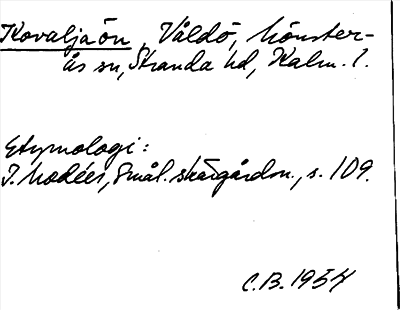 Kovaljaön, Våldö, Mönster-
ås sn, Stranda hd, Kalm. l.
Etymologi:
I. Modéer, Smål. skärgårdsn., s. 109.
C.B. 1954